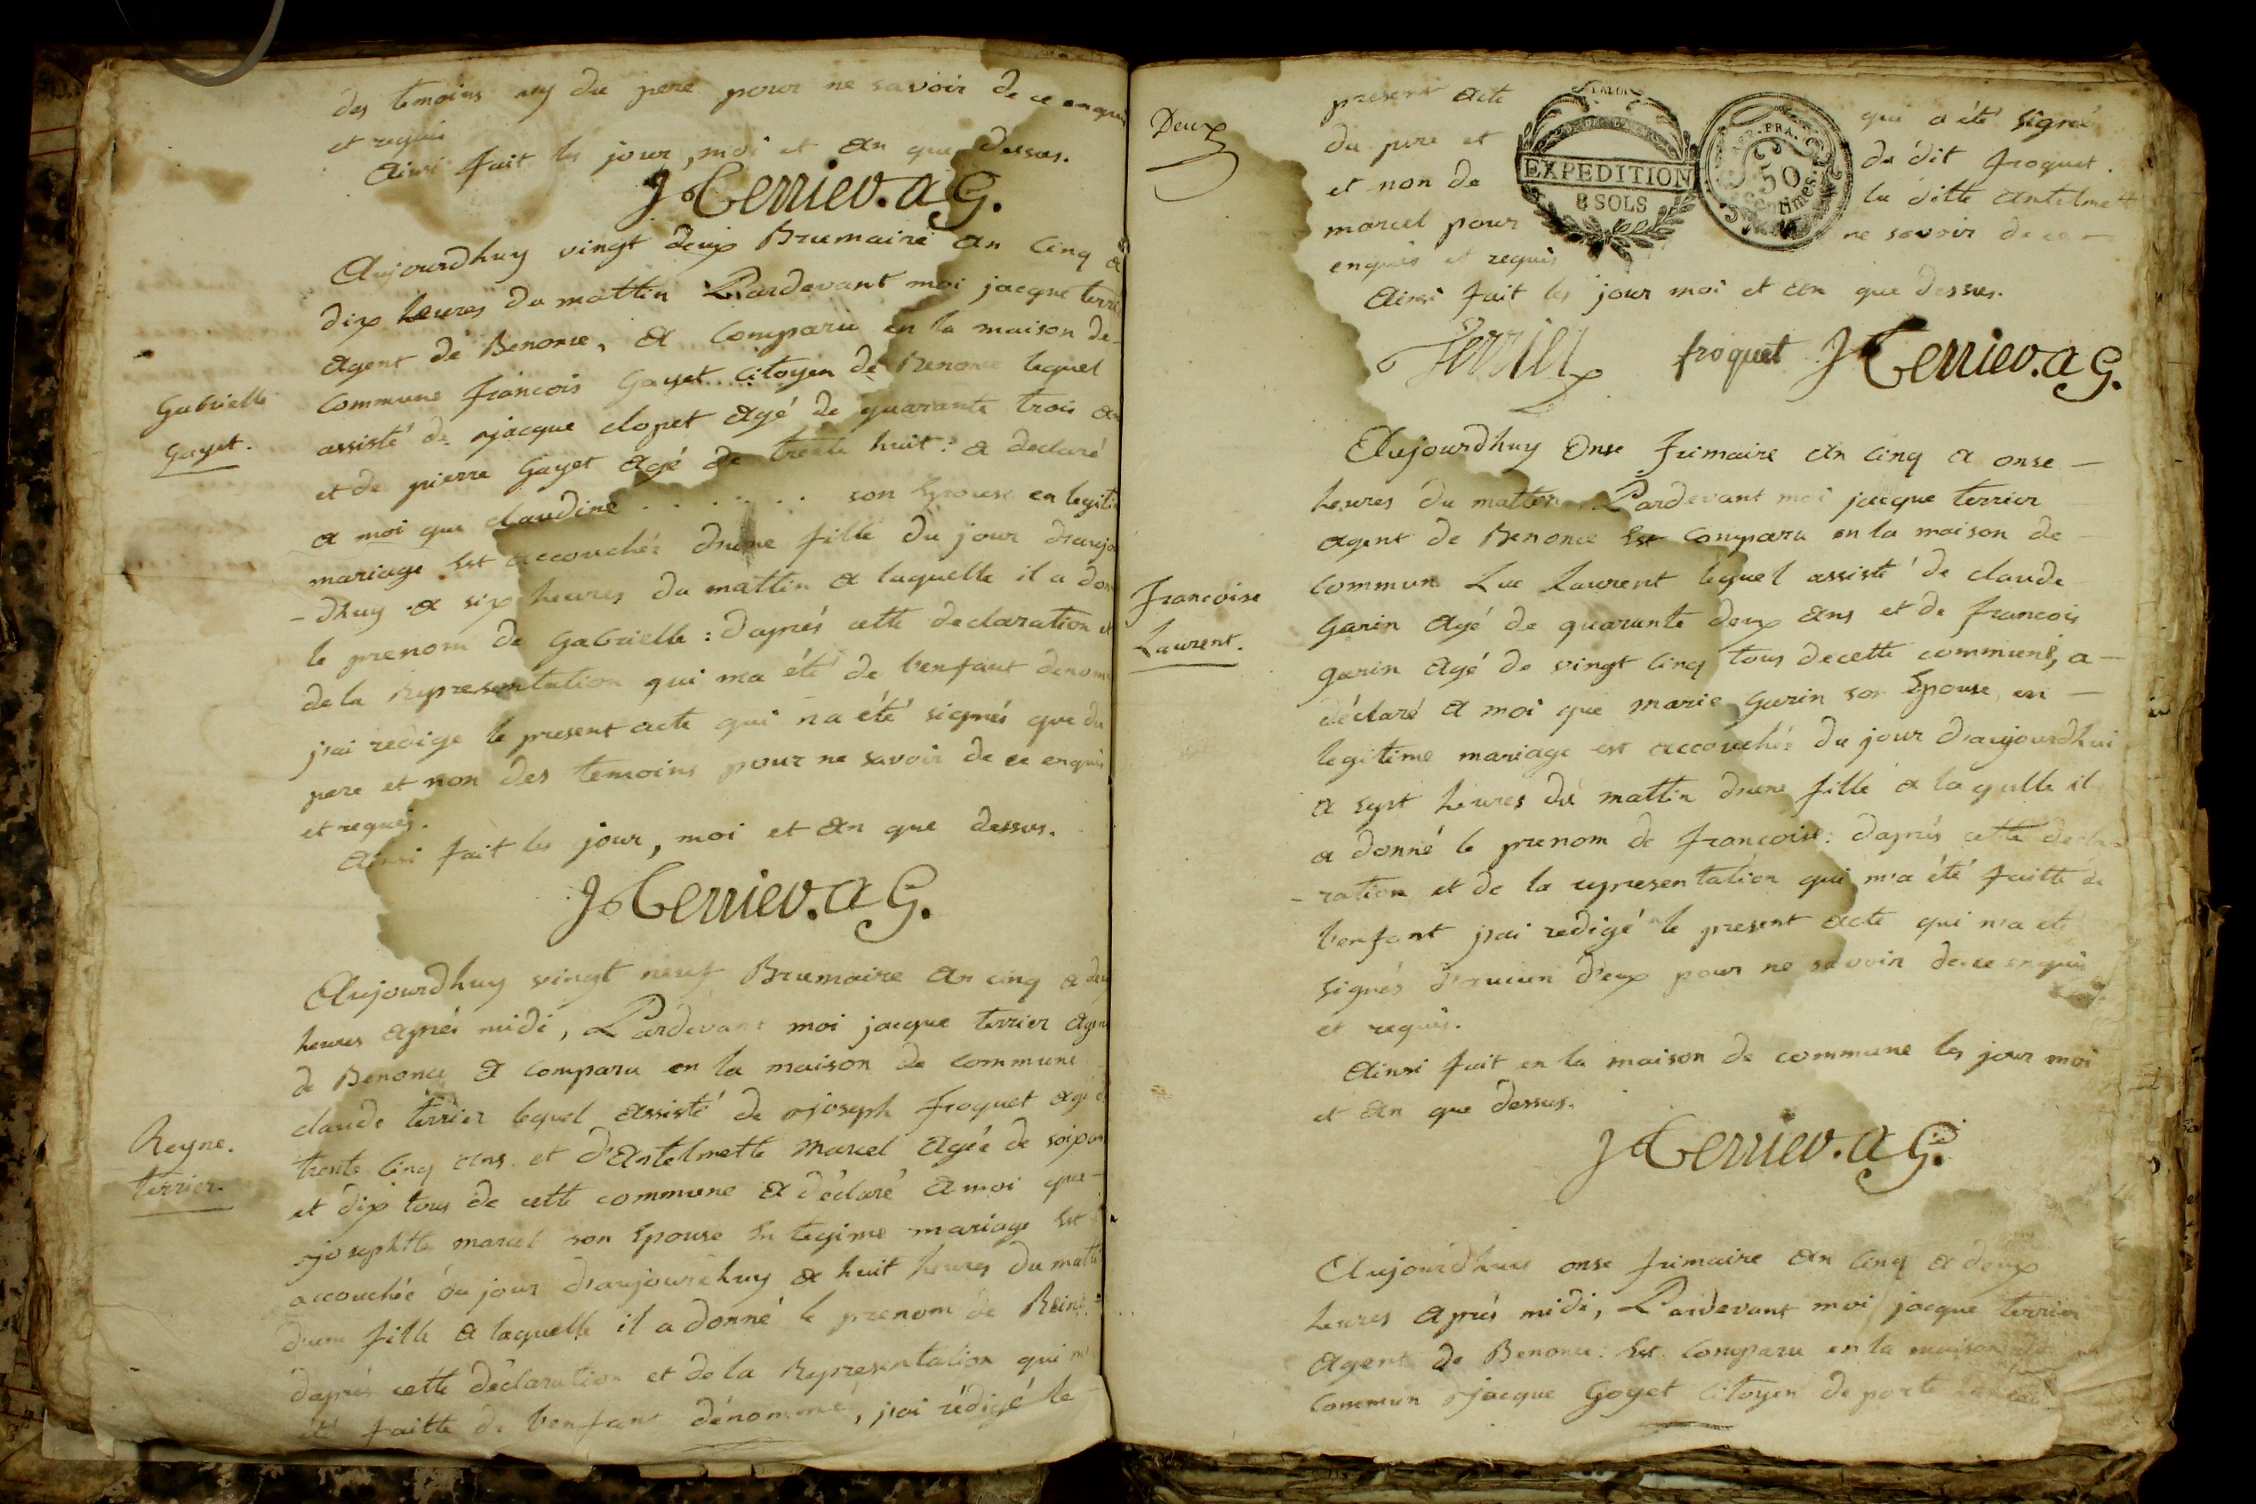 des temoins ny du pere pour ne savoir de ce enquis
et requis
Ainsi fait les jour, moi et an que dessus.
J Terrier. a G.
Aujourdhuy vingt deux Brumaire an cinq a
dix heures du mattin Pardevant moi jacque terrier
agent de Benonce, a comparu en la maison de
commune francois Gayet citoyen de Benonce lequel
assisté de jacque clopet agé de quarante trois an
et de pierre Gayet agé de trente huit : a declaré
Gabrielle
Gayet.
a moi que claudine . . . . . . son Epouse en legiti
mariage Est accouchée d'une fille du jour d'aujo
- dhuy a six heures du mattin a laquelle il a don
le prenom de Gabrielle : daprés cette declaration et
de la Representation qui ma été de l'enfant denom
j'ai redigé le present acte qui n'a été signés que du
pere et non des temoins pour ne savoir de ce enquis
et requis.
Ainsi fait les jour, moi et an que dessus.
J Terrier. a G.
Aujourdhuy vingt neuf Brumaire an cinq a deux
heures aprés midi, Pardevant moi jacque terrier agent
de Benonce a comparu en la maison de commune
claude terrier lequel assisté de joseph froquet agé de
trente cinq ans et d'Antelmette Marcel agée de soixan
et dix tous de cette commune a déclaré a moi que
Reyne.
terrier.
josephtte marcel son Epouse En legime mariage Est
accouchée du jour d'aujourdhuy a huit heures du mattin
d'une fille a laquelle il a donné le prenom de Reine.
daprés cette déclaration et de la Representation qui m'a
été faitte de l'enfant dénommé, j'ai rédigé le
Deux
present acte qui a été signé
du pere et du dit froquet.
et non de la ditte antelmett
marcel pour ne savoir de ce
enquis et requis
LA LOI
EXPEDITION
8 SOLS
REP. FRA.
50
centimes.
Ainsi fait les jour moi et an que dessus.
Terrier froquet J Terrier. a G.
Aujourdhuy Onse frimaire an cinq a onse —
heures du mattin Pardevant moi jacque terrier
agent de Benonce Est comparu en la maison de —
commun Luc Laurent lequel assisté de claude
Garin agé de quarante deux ans et de francois
Francoise
Laurent.
garin agé de vingt cinq tous de cette commune, a —
déclaré a moi que marie Garin son Epouse en —
legitime mariage est accouchée du jour d'aujourdhui
a sept heures du mattin d'une fille a laqulle il
a donné le prenom de francoise : daprés cette decla-
- ration et de la representation qui m'a été faitte de
l'enfant j'ai redigé le present acte qui n'a eté
signés d'aucun d'eux pour ne savoir de ce enquis
et requis.
Ainsi fait en la maison de commune les jour moi
et an que dessus.
J Terrier. a G.
Aujourdhui onse frimaire an cinq a deux
heures aprés midi, Pardevant moi jacque terrier
agent de Benonce Est comparu en la maison de
commun jacque Goyet citoyen de porte